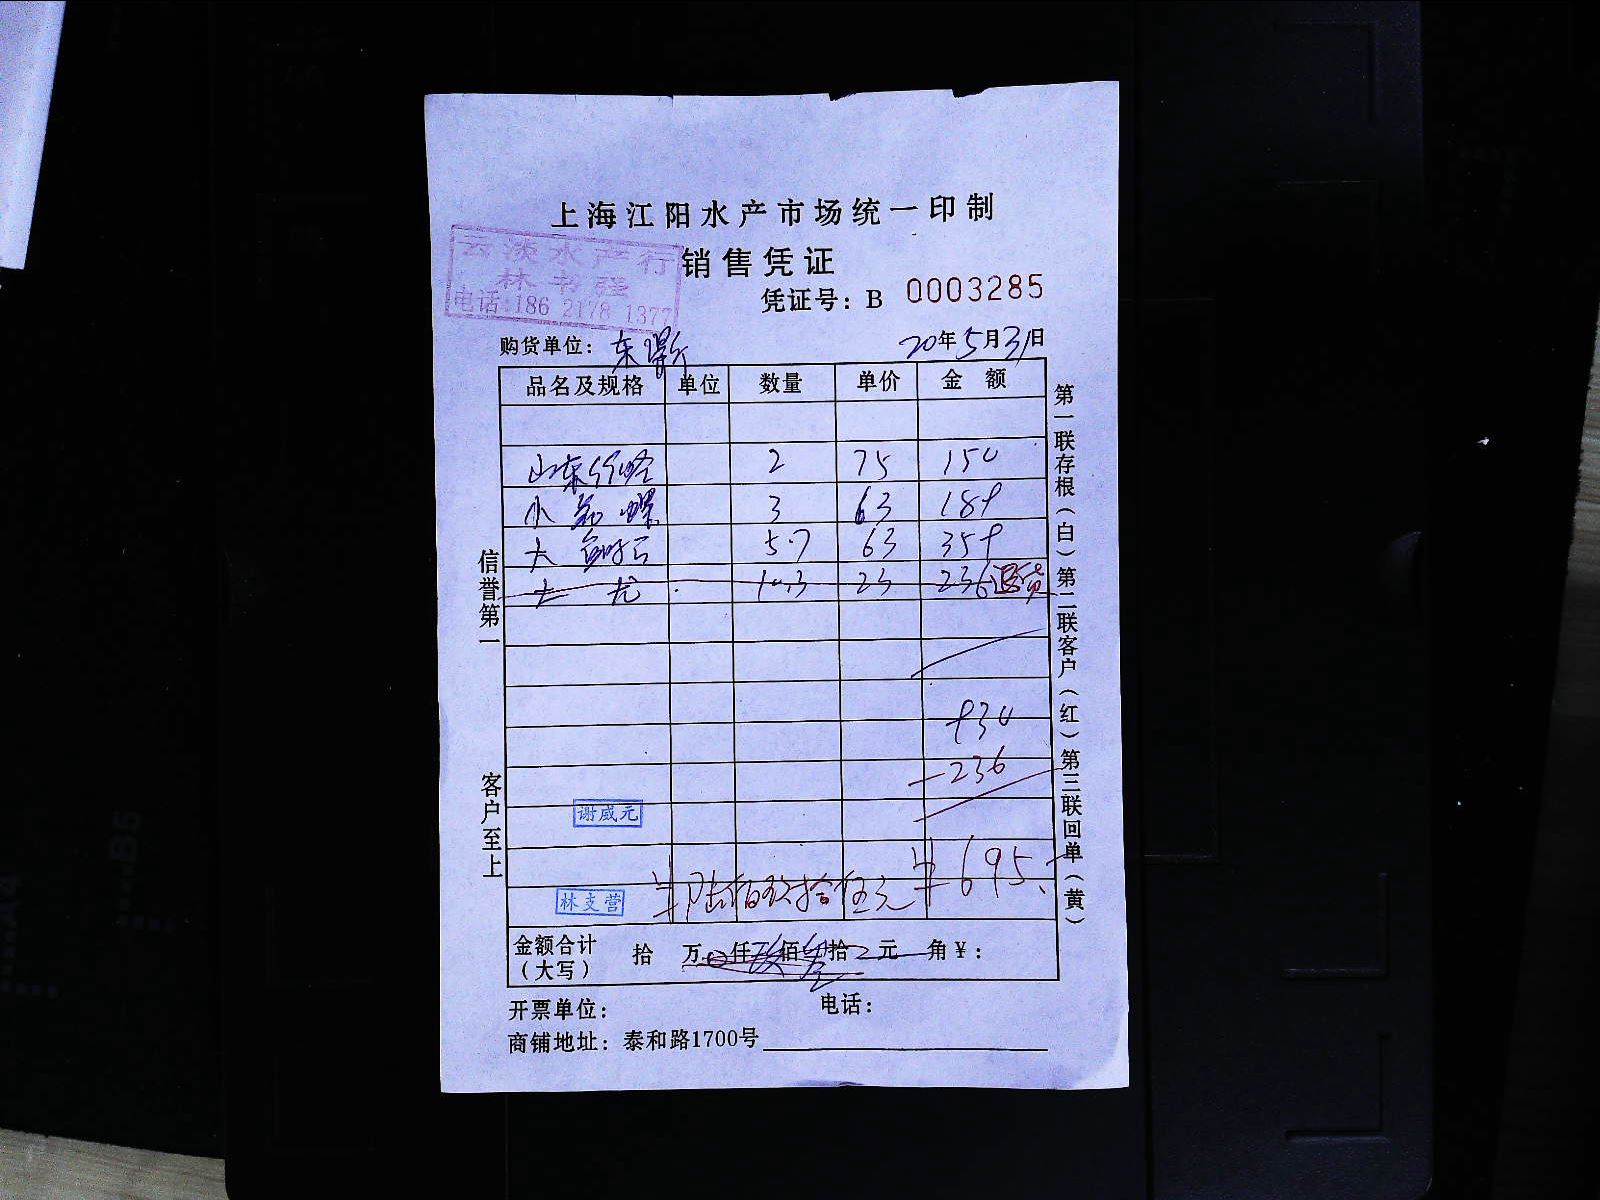 上海江阳水产市场统一印制
销售凭证
云淡水产行
林书强
电话:186 2178 1377
凭证号：B 0003285
购货单位：东
20年5月31日
品名及规格 单位 数量 单价 金额
山东 2 75 150
小鲍螺 3 63 189
大 5.7 63 359
大尤 10.3 23 236 退货
930
-236
谢威元
¥695.
林支营
¥陆佰玖拾伍元
金额合计（大写） 拾 万 仟 佰 拾 元 角 ¥：
开票单位： 电话：
商铺地址：泰和路1700号
信誉第一
客户至上
第一联存根（白）第二联客户（红）第三联回单（黄）